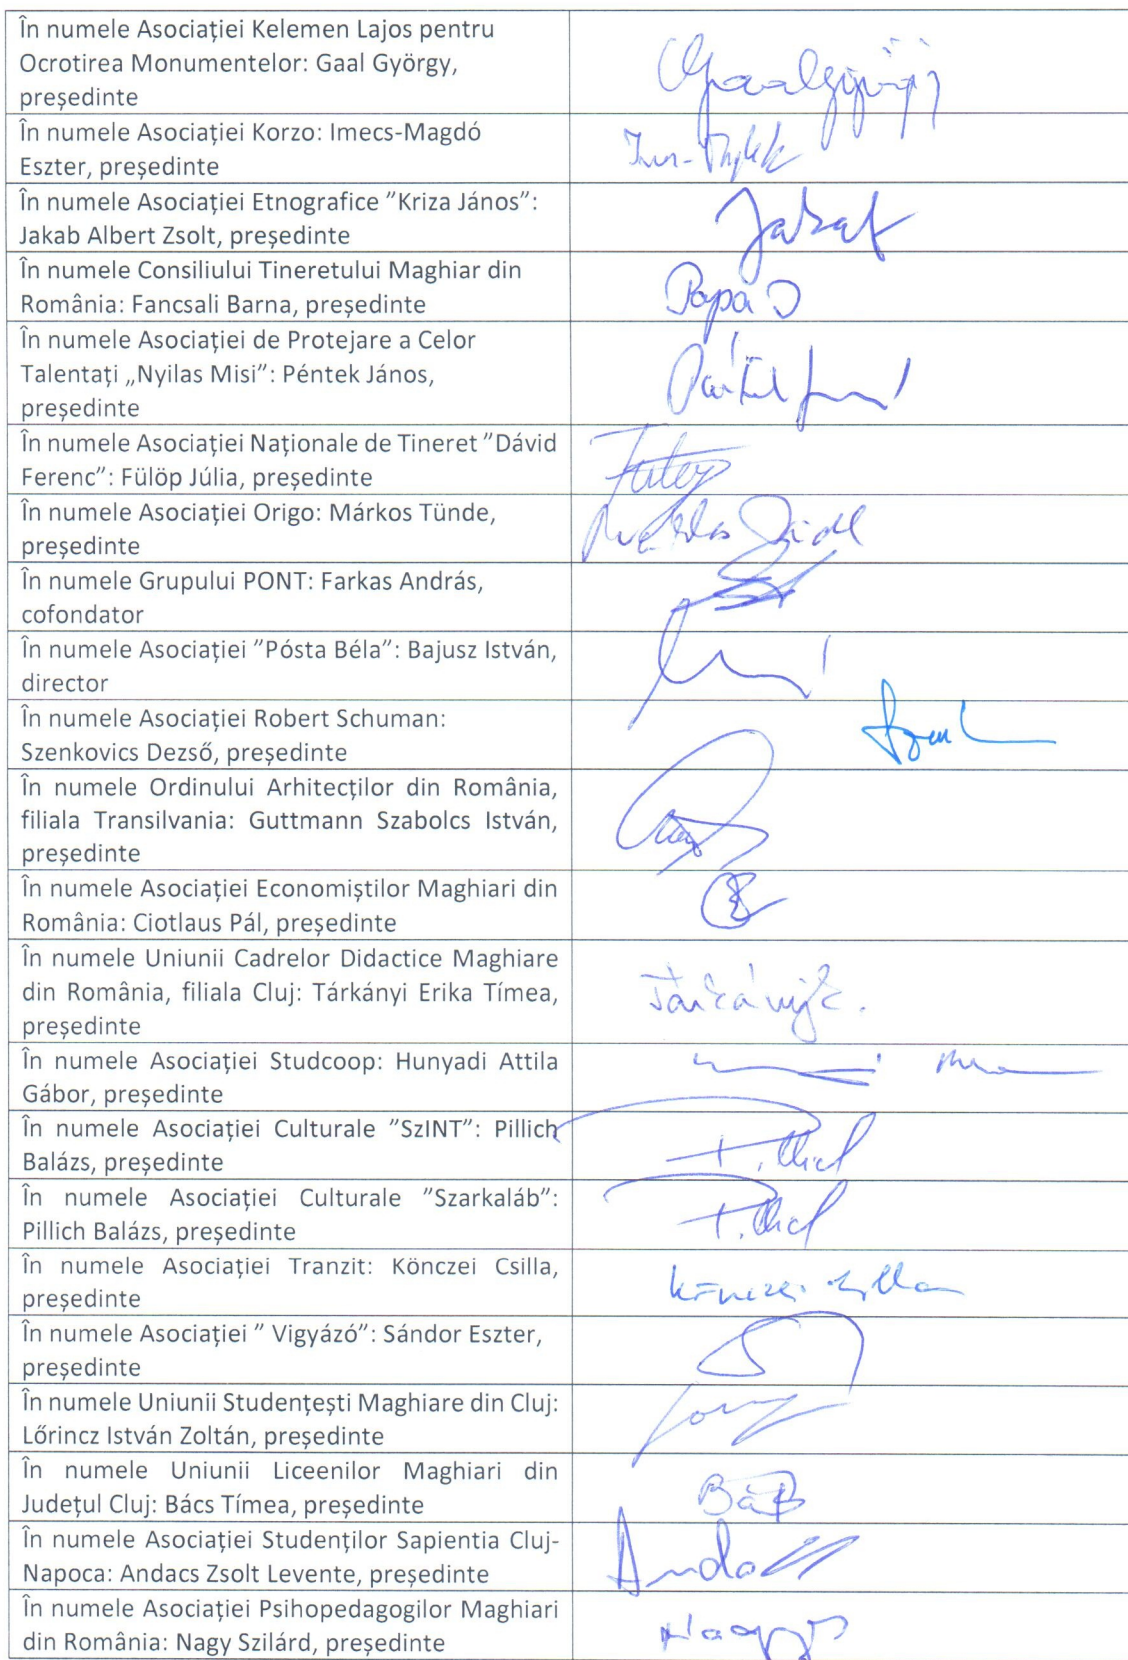 În numele Asociației Kelemen Lajos pentru
Ocrotirea Monumentelor: Gaal György,
președinte
Gaal György
În numele Asociației Korzo: Imecs-Magdó
Eszter, președinte
În numele Asociației Etnografice ”Kriza János”:
Jakab Albert Zsolt, președinte
Jakab
În numele Consiliului Tineretului Maghiar din
România: Fancsali Barna, președinte
Papa
În numele Asociației de Protejare a Celor
Talentați „Nyilas Misi”: Péntek János,
președinte
În numele Asociației Naționale de Tineret ”Dávid
Ferenc”: Fülöp Júlia, președinte
Fülöp
În numele Asociației Origo: Márkos Tünde,
președinte
În numele Grupului PONT: Farkas András,
cofondator
În numele Asociației ”Pósta Béla”: Bajusz István,
director
În numele Asociației Robert Schuman:
Szenkovics Dezső, președinte
În numele Ordinului Arhitecților din România,
filiala Transilvania: Guttmann Szabolcs István,
președinte
În numele Asociației Economiștilor Maghiari din
România: Ciotlaus Pál, președinte
În numele Uniunii Cadrelor Didactice Maghiare
din România, filiala Cluj: Tárkányi Erika Tímea,
președinte
În numele Asociației Studcoop: Hunyadi Attila
Gábor, președinte
În numele Asociației Culturale ”SzINT”: Pillich
Balázs, președinte
În numele Asociației Culturale ”Szarkaláb”:
Pillich Balázs, președinte
În numele Asociației Tranzit: Könczei Csilla,
președinte
Könczei Csilla
În numele Asociației ” Vigyázó”: Sándor Eszter,
președinte
În numele Uniunii Studențești Maghiare din Cluj:
Lőrincz István Zoltán, președinte
În numele Uniunii Liceenilor Maghiari din
Județul Cluj: Bács Tímea, președinte
În numele Asociației Studenților Sapientia Cluj-
Napoca: Andacs Zsolt Levente, președinte
În numele Asociației Psihopedagogilor Maghiari
din România: Nagy Szilárd, președinte